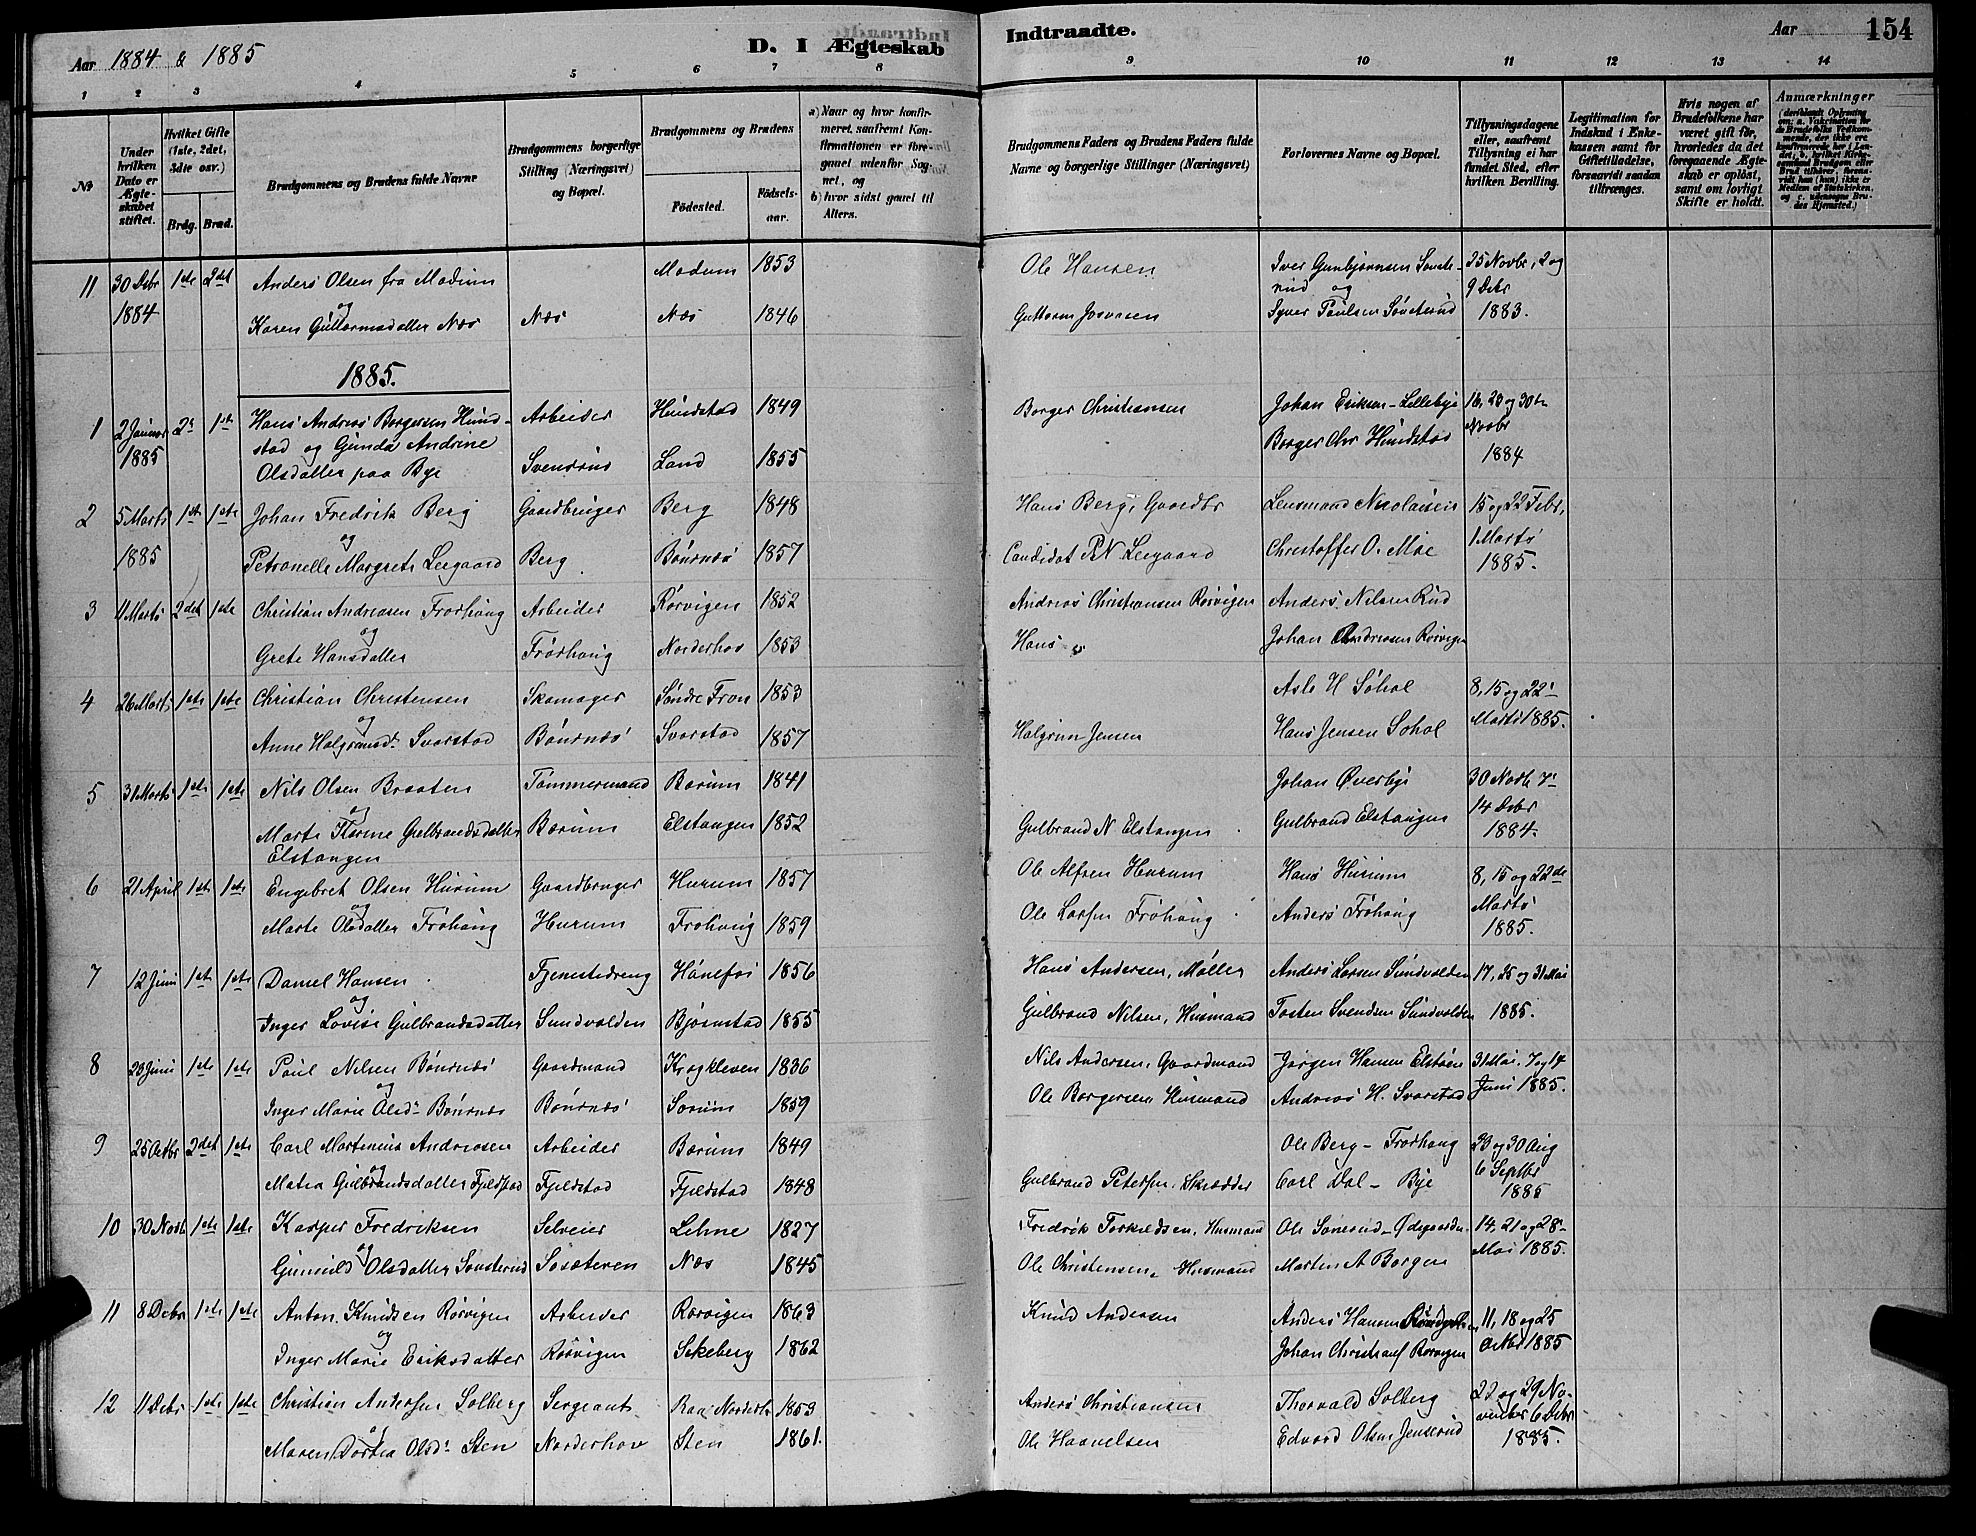 Aar 1884 & 1885
D. I Ægteskab
Indtraadte.
Aar
154
1 2 3 4 5 6 7 8 9 10 11 12 13 14
№
Under hvilken Dato er Ægteskabet stiftet.
Hvilket Gifte (1ste, 2det, 3die osv.)
Brdg. Brud.
Brudgommens og Brudens fulde Navne
Brudgommens borgerlige Stilling (Næringsvei) og Bopæl.
Brudgommens og Brudens
Fødested.
Fødsels-aar.
a) Naar og hvor konfirmeret, saafremt Konfirmationen er foregaaet udenfor Sognet, og
b) hvor sidst gaaet til Alters.
Brudgommens Faders og Brudens Faders fulde Navne og borgerlige Stillinger (Næringsvei)
Forlovernes Navne og Bopæl.
Tillysningsdagene eller, saafremt Tillysning ei har fundet Sted, efter hvilken Bevilling.
Legitimation for Indskud i Enkekassen samt for Giftetilladelse, forsaavidt saadan tiltrænges.
Hvis nogen af Brudefolkene har været gift før, hvorledes da det foregaaende Ægteskab er opløst, samt om lovligt Skifte er holdt.
Anmærkninger
11 30 Debr 1ste 2det Anders Olsen fra Modum Modum 1853 Ole Hansen Iver Gunbjørnsen Sønste- 25 Novbr, 2 og
og rud og 9 Debr
1884 Karen Guttormsdatter Næs Næs Næs 1846 Guttorm Josvasen Syver Paulsen Sønsterud 1883.
1885.
1 2 Januar 2t 1ste Hans Andreas Borgersen Hund- Arbeider Hundstad 1849 Borger Christiansen Johan Eriksen Lillebye 16, 23 og 30te
1885 stad og Gunda Andrine Borger Chr Hundstad Novbr
Olsdatter paa Bye Svensrud Land 1855 1884
2 5 Marts 1ste 1ste Johan Fredrik Berg Gaardbruger Berg 1848 Hans Berg, Gaardbr Lensmand Nicolaisen 15 og 22 Febr,
og 1 Marts
1885 Petronelle Margrete Leegaard Berg Bønsnæs 1857 Candidat P N Leegaard Christoffer O. Moe 1885.
3 11 Marts 2det 1ste Christian Andreasen Frørhaug Arbeider Rørvigen 1852 Andreas Christiansen Rørvigen Anders Nilsen Rud
og
Grete Hansdatter Frørhaug Norderhov 1853 Hans Johan Andreasen Rørvigen
4 26 Marts 1ste 1ste Christian Christensen Skomager Søndre Fron 1853 Asle H Sohol 8, 15 og 22'
og Marts 1885.
Anne Halgrimsdr Svarstad Bønsnæs Svarstad 1857 Halgrim Jensen Hans Jensen Sohol
5 31 Marts 1ste 1ste Nils Olsen Braaten Tømmermand Bærum 1841 Johan Øverbye 30 Novb 7'
og 14 Debr
Marte Karine Gulbrandsdatter Bærum Elstangen 1852 Gulbrand N Elstangen Gulbrand Elstangen 1884.
Elstangen
6 21 April 1ste 1ste Engebret Olsen Hurum Gaardbruger Hurum 1857 Ole Alfsen Hurum Hans Hurum 8, 15 og 22de
og Marts
Marte Olsdatter Frøhaug Hurum Frøhaug 1859 Ole Larsen Frøhaug Anders Frøhaug 1885.
7 12 Juni 1ste 1ste Daniel Hansen Tjenestedreng Hønefos 1856 Hans Andersen, Møller Anders Larsen Sundvolden 17, 25 og 31 Mai
og
Inger Lovise Gulbrandsdatter Sundvolden Bjørnstad 1855 Gulbrand Nilsen, Husmand Tosten Svendsen Sundvolden 1885.
8 23 Juni 1ste 1ste Paul Nilsen Bønsnæs Gaardmand Krogkleven 1836 Nils Andersen, Gaardmand Jørgen Hansen Elstøen 31 Mai, 7 og 14
og Juni 1885.
Inger Marie Olsdr Bønsnæs Bønsnæs Sørum 1859 Ole Borgersen Husmand Andreas H. Svarstad
9 25 Octbr 2det 1ste Carl Martenius Andreasen Arbeider Bærum 1849 Ole Berg - Frørhaug 23 og 30 Aug
og 6 Septbr
Matea Gulbrandsdatter Fjeldstad Fjeldstad Fjeldstad 1848 Gulbrand Petersen, Skrædder Carl Dal - Bye 1885
10 30 Novb 1ste 1ste Kasper Fredriksen Selveier Lehne 1827 Fredrik Torkildsen, Husmand Ole Sønsrud - Ødegaarden 14, 21 og 28-
og Mai 1885.
Gunild Olsdatter Sønsterud Sosæteren Næs 1845 Ole Christensen, Husmand Martin A Borgen
11 8 Debr 1ste 1ste Anton Knudsen Rørvigen Arbeider Rørvigen 1863 Knud Andersen Anders Hansen 11, 18 og 25
og Octbr 1885
Inger Marie Eriksdatter Rørvigen Sekeberg 1862 Johan Christians Rørvigen
12 11 Debr 1ste 1ste Christian Andersen Solberg Sergeant Raa Norderh. 1853 Anders Christiansen Thorvald Solberg 22 og 29 No-
og vember 6 Debr
Maren Dortea Olsdr Sten Norderhov Sten 1861. Ole Haavelsen Edvard Olsen Jenserud 1885.